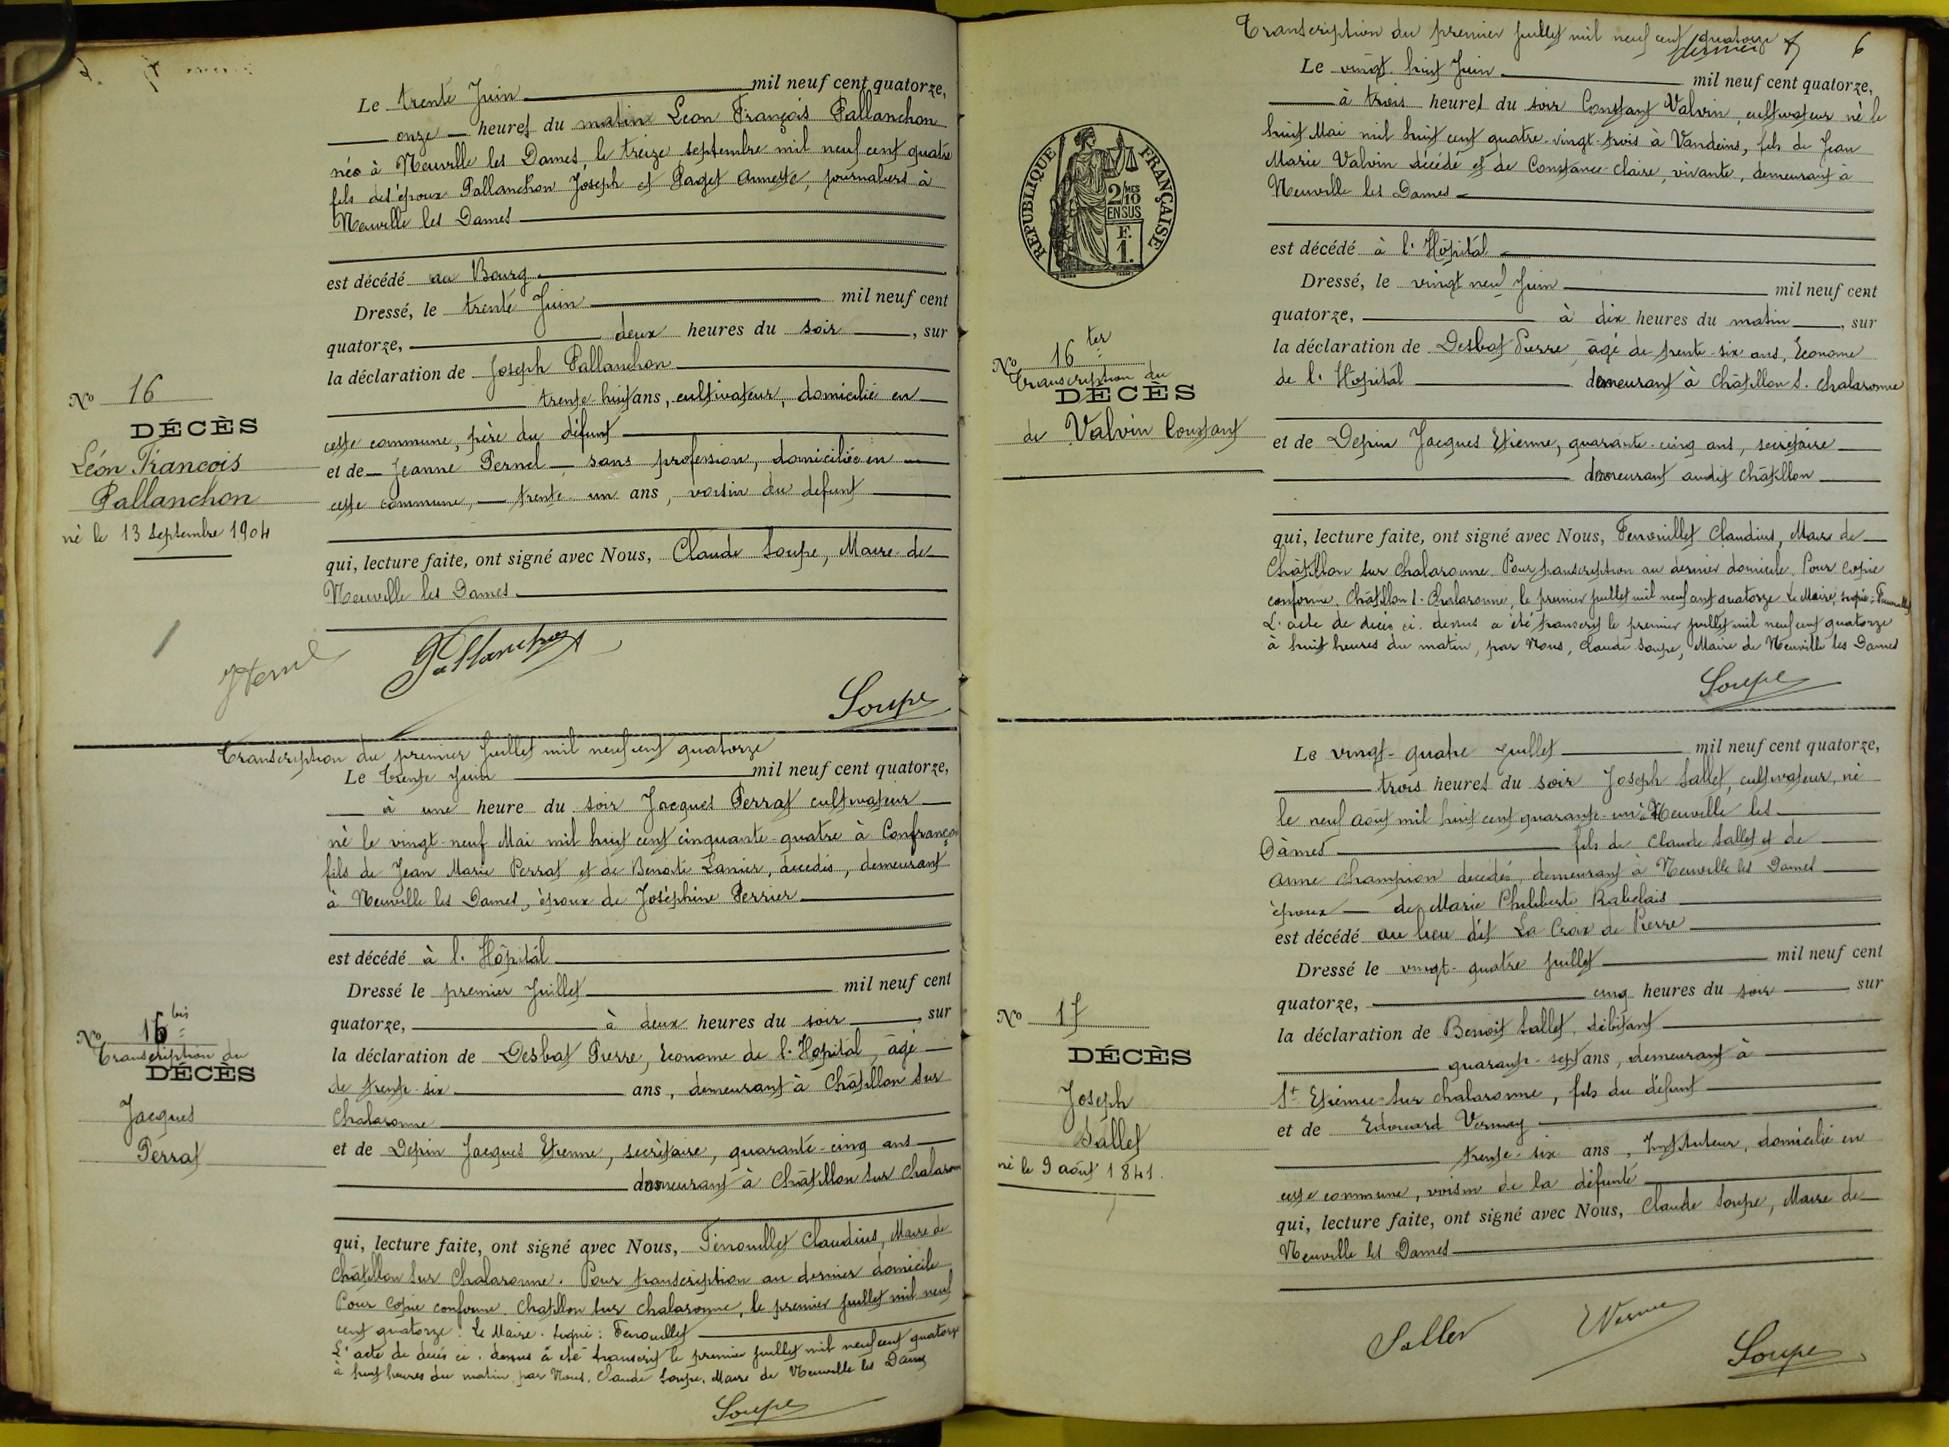 Le trente Juin mil neuf cent quatorze,
onze heures du matin Léon François Pallanchon
née à Neuville les Dames, le treize septembre mil neuf cent quatre
fils des époux Pallanchon Joseph et Paget Annette, journaliers à
Neuville les Dames
est décédé au Bourg
Dressé, le trente Juin mil neuf cent
quatorze, deux heures du soir, sur
la déclaration de Joseph Pallanchon
trente-huit ans, cultivateur, domicilié en
cette commune, père du défunt
et de Jeanne Pernel sans profession, domiciliée en
cette commune, trente un ans, voisin du défunt
qui, lecture faite, ont signé avec Nous, Claude Soupe, Maire de
Neuville les Dames
No 16
DÉCÈS
Léon Francois
Pallanchon
né le 13 Septembre 1904
Pallanchon
Soupe
Transcription du premier Juillet mil neuf cent quatorze
Le Trente Juin mil neuf cent quatorze,
à une heure du soir Jacques Perrat cultivateur
né le vingt-neuf Mai mil huit cent cinquante-quatre à Confrançon
fils de Jean Marie Perrat et de Benoite Lanier, décédés, demeurant
à Neuville les Dames, époux de Joséphine Perrier
est décédé à l'Hôpital
Dressé le premier Juillet mil neuf cent
quatorze, à deux heures du soir, sur
la déclaration de Desbat Pierre, Econome de l'Hopital, âgé
de trente-six ans, demeurant à Châtillon sur
Chalaronne
et de Depin Jacques Etienne, secrétaire, quarante-cinq ans
demeurant à Châtillon sur Chalaronne
qui, lecture faite, ont signé avec Nous, Fenouillet Claudius, Maire de
Châtillon sur Chalaronne. Pour transcription au dernier domicile
Pour copie conforme. Chatillon sur Chalaronne, le premier juillet mil neuf
cent quatorze. Le Maire. Signé: Fenouillet
L'acte de décès ci-dessus a été transcrit le premier juillet mil neuf cent quatorze
à huit heures du matin, par Nous, Claude Soupe, Maire de Neuville les Dames
No 16 bis
Transcription du
DÉCÈS
Jacques
Perrat
Soupe
Transcription du premier Juillet mil neuf cent quatorze
6
Le vingt-huit Juin mil neuf cent quatorze,
à trois heures du soir Constant Valvin, cultivateur né le
huit Mai mil huit cent quatre-vingt-trois à Vandeins, fils de Jean
Marie Valvin décédé et de Constance Claire, vivante, demeurant à
Neuville les Dames
est décédé à l'Hôpital
Dressé, le vingt neuf Juin mil neuf cent
quatorze, à dix heures du matin, sur
la déclaration de Desbat Pierre âgé de trente-six ans, Econome
de l'Hopital demeurant à Châtillon s. Chalaronne
et de Depin Jacques-Etienne, quarante-cinq ans, secrétaire
demeurant audit Châtillon
qui, lecture faite, ont signé avec Nous, Fenouillet Claudius, Maire de
Châtillon sur Chalaronne. Pour transcription au dernier domicile. Pour copie
conforme. Châtillon s. Chalaronne, le premier juillet mil neuf cent quatorze. Le Maire, signé: Fenouillet
L'acte de décès ci-dessus a été transcrit le premier juillet mil neuf cent quatorze
à huit heures du matin, par Nous, Claude Soupe, Maire de Neuville les Dames
RÉPUBLIQUE FRANÇAISE
2/10MES
EN SUS
F.
1.
No 16 ter
Transcription du
DÉCÈS
de Valvin Constant
Soupe
Le vingt-quatre Juillet mil neuf cent quatorze,
trois heures du soir Joseph Sallet, cultivateur, né
le neuf août mil huit cent quarante-un à Neuville les
Dames fils de Claude Sallet et de
Anne Champion décédés, demeurant à Neuville les Dames
époux de Marie Philiberte Rabelais
est décédé au lieu dit La Croix de Pierre
Dressé le vingt-quatre juillet mil neuf cent
quatorze, cinq heures du soir sur
la déclaration de Benoit Sallet, débitant
quarante-sept ans, demeurant à
St Etienne-sur Chalaronne, fils du défunt
et de Edouard Vernay
trente-six ans, Instituteur, domicilié en
cette commune, voisin de la défunte
qui, lecture faite, ont signé avec Nous, Claude Soupe, Maire de
Neuville les Dames
No 17
DÉCÈS
Joseph
Sallet
né le 9 août 1841.
Sallet
Soupe